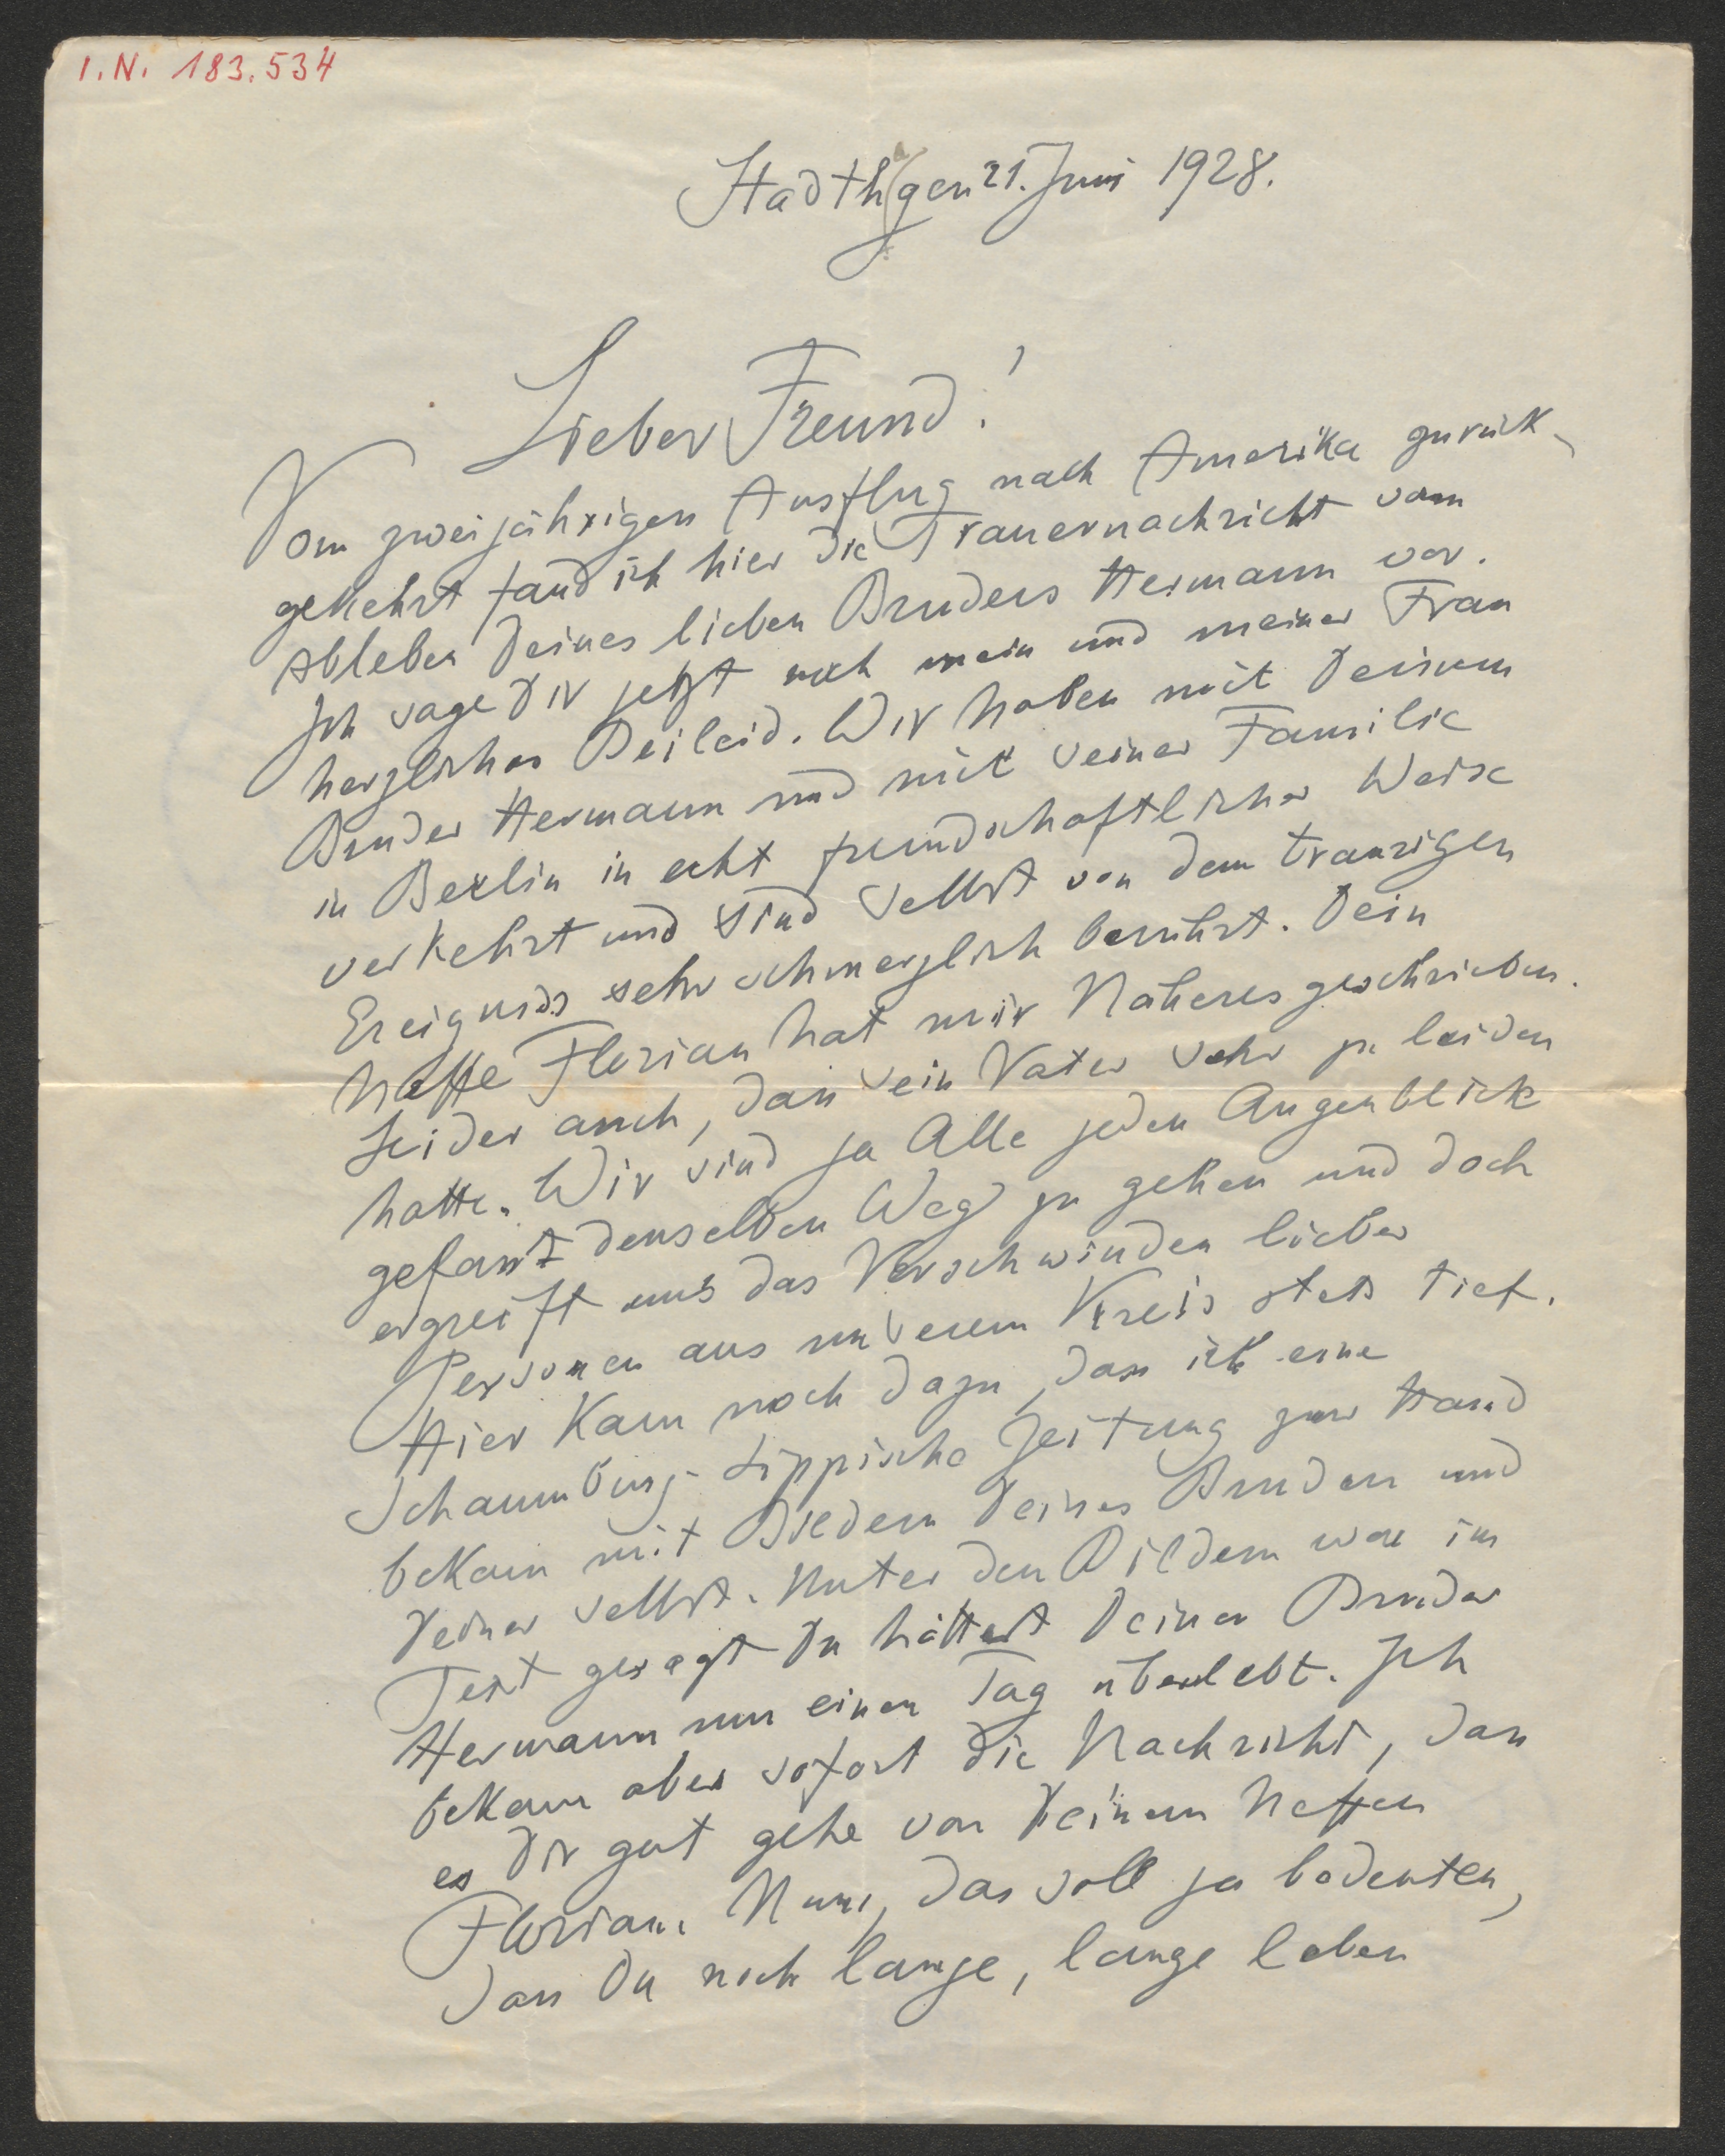 I.N. 183.534
Stadthgen 21. Juni 1928.
Lieber Freund!
Vom zweijährigen Ausflug nach Amerika zurück-
gekehrt fand ich hier die Trauernachricht vom
Ableben Deines lieben Bruders Hermann vor.
Ich sage Dir jetzt noch mein und meiner Frau
herzliches Beileid. Wir haben mit Deinem
Bruder Hermann und mit seiner Familie
in Berlin in echt freundschaftlicher Weise
verkehrt und sind selbst von dem traurigen
Ereigniss sehr schmerzlich berührt. Dein
Neffe Florian hat mir Näheres geschrieben.
Leider auch, dass sein Vater sehr zu leiden
hatte. Wir sind ja Alle jeden Augenblick
gefasst denselben Weg zu gehen und doch
ergreift uns das Verschwinden lieber
Personen aus unserem Kreis stets tief.
Hier kam noch dazu, dass ich eine
Schaumburg-Lippische Zeitung zur Hand
bekam mit Bildern Deines Bruders und
Deiner selbst. Unter den Bildern war im
Text gesagt Du hättest Deinen Bruder
Hermann nur einen Tag überlebt. Ich
bekam aber sofort die Nachricht, dass
es Dir gut gehe von Deinem Neffen
Florian. Nun, das soll ja bedeuten,
dass Du noch lange, lange leben